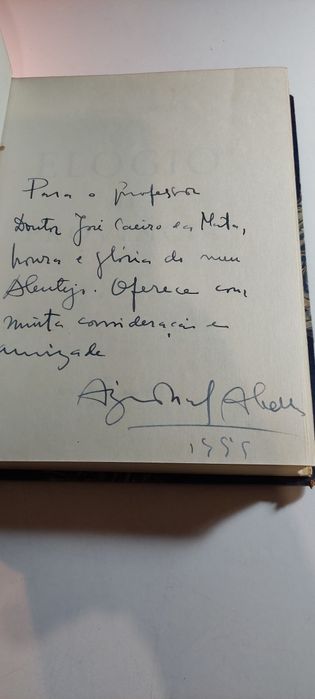 ELOGIO
Para o professor
Doutor José Caeiro da Mata,
honra e glória do meu
Alentejo. Oferece com
muita consideração e
amizade
1955